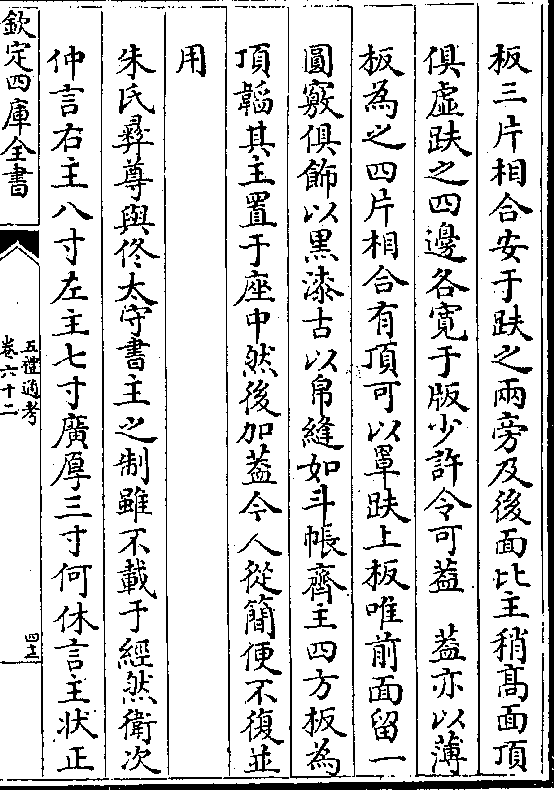 板三片相合安于趺之兩旁及後面比主稍高面頂
俱虛趺之四邊各寛于版少許令可葢　葢亦以薄
板為之四片相合有頂可以罩趺上板唯前面留一
圓竅俱飾以黒漆古以帛縫如斗帳齊主四方板為
頂韜其主置于座中然後加葢今人從簡便不復並
用
朱氏彛尊與佟太守書主之制雖不載于經然衛次
仲言右主八寸左主七寸廣厚三寸何休言主狀正
欽定四庫全書
五禮通考
卷六十二